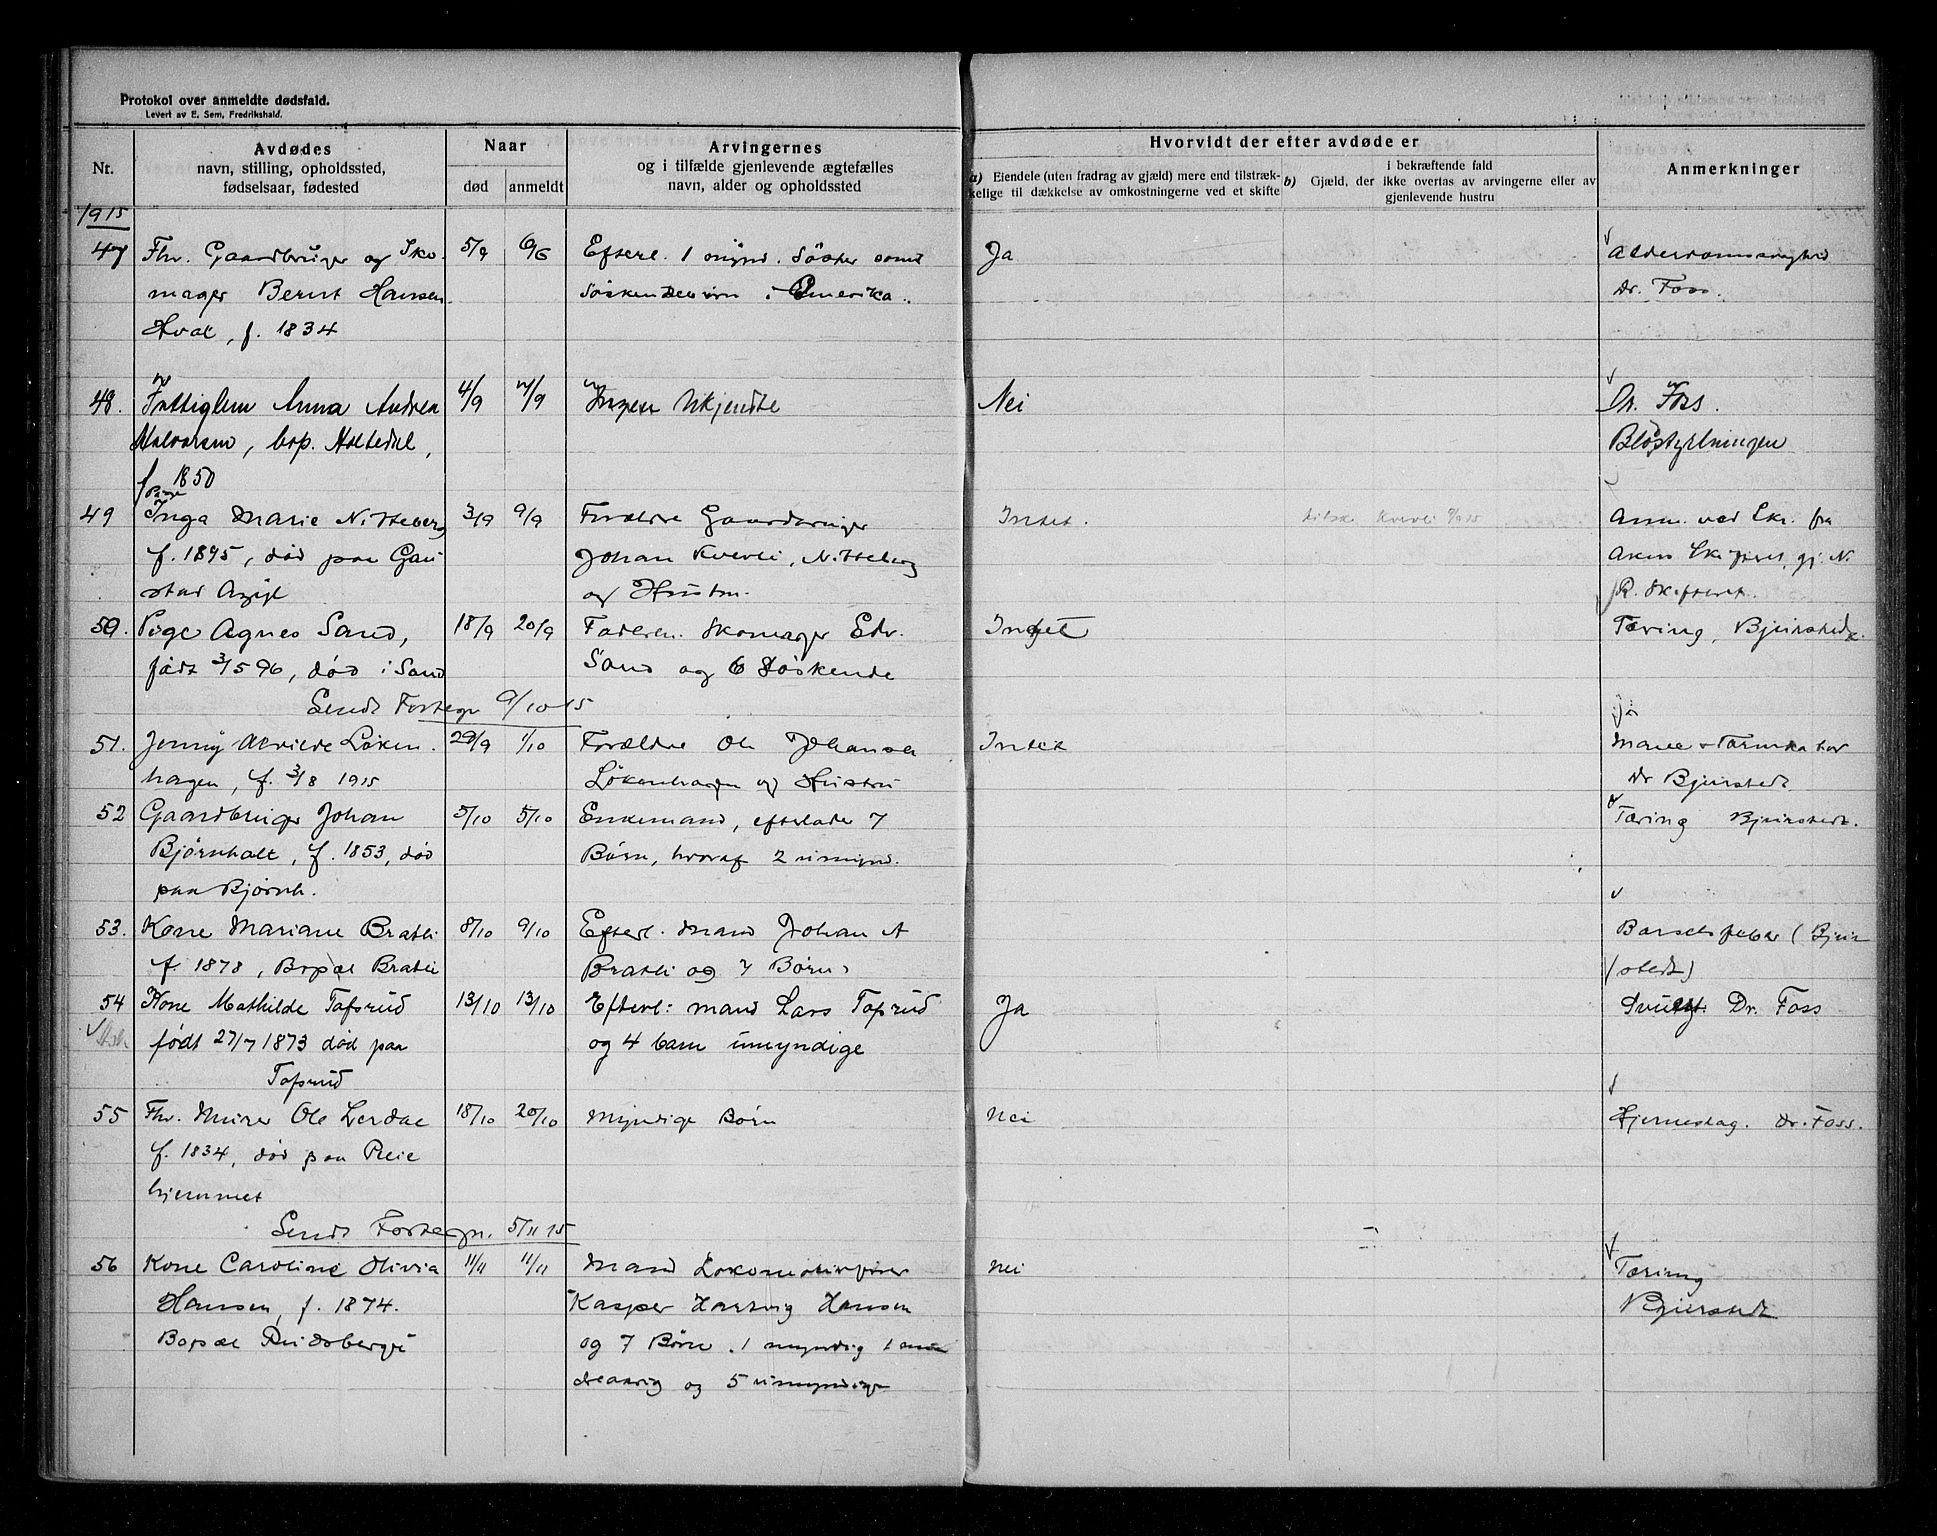 Protokol over anmeldte dødsfald.
Levert av E. Sem, Fredrikshald.
Nr.
Avdødes
navn, stilling, opholdssted,
fødselsaar, fødested
Naar
død anmeldt
Arvingernes
og i tilfælde gjenlevende ægtefælles
navn, alder og opholdssted
Hvorvidt der efter avdøde er
a) Eiendele (uten fradrag av gjæld) mere end tilstræk-
kelige til dækkelse av omkostningerne ved et skifte
b) Gjæld, der
i bekræftende fald
ikke overtas av arvingerne eller av
gjenlevende hustru
Anmerkninger
1915
47 Fhv. Gaardbruger og Sko- 5/9 Efterl. 1 mynd. Søster samt Ja Alderdomssvaghed
mager Bernt Hansen Søskendebørn i Amerika. Dr. Foss.
Hval, f. 1834
48. Fattiglem Anna Andrea 4/9 7/9 Ingen Ukjendte Nei Dr. Foss.
Halvorsen, bop. Holtedal, Blodstyrtningen
f 1850
Pige
49 Inga Marie Nitteberg 3/9 9/9 Forældre Gaardbruger Intet. Anm. ved Skr. fra
f. 1895, død paa Gau Johan Kverli, Nitteberg Akers Skifteret, gj. N.
stad Asyl og Hustru. R. Skifteret.
50. Pige Agnes Sand, 18/9 20/9 Faderen. Skomager Edv. Intet Tæring, Bjerstedt.
født 3/5 96, død i Sand Sand og 6 Søskende
Sendt Fortegn 9/10-15
51. Jenny Alvilde Løken 29/9 1/10 Forældre Ole Johansen Intet Mave & Tarmkatar
hagen, f. 3/8 1915 Løkenhagen og Hustru dr Bjerstedt
52 Gaardbruger Johan 5/10 5/10 Enkemand, efterlader 7 Tæring Bjerstedt.
Bjørnholt, f. 1853, død Børn, hvoraf 2 umynd.
paa Bjørnh.
53. Kone Mariane Bratli 8/10 9/10 Efterl. Mand Johan A Barselsfeber (Bjer
f. 1878, Bopæl Bratli Bratli og 7 Børn. stedt)
54 Kone Mathilde Tofsrud 13/10 13/10 Efterl: mand Lars Tofsrud Ja Dr. Foss
født 27/7 1873 død paa og 4 barn umyndige
Tofsrud
55 Fhv. Murer Ole Lerdal 18/10 20/10 Myndige Børn Nei Hjerneslag. Dr. Foss.
f. 1834, død paa Pleie
hjemmet
Sendt Fortegn. 5/11 15
56 Kone Caroline Olivia 11/11 11/11 Mand Lokomotivfører Nei Tæring
Hansen, f. 1874. Kasper Hartvig Hansen Bjerstedt
Bopæl og 7 Børn. 1 myndig 1 min
dreaarig og 5 umyndige